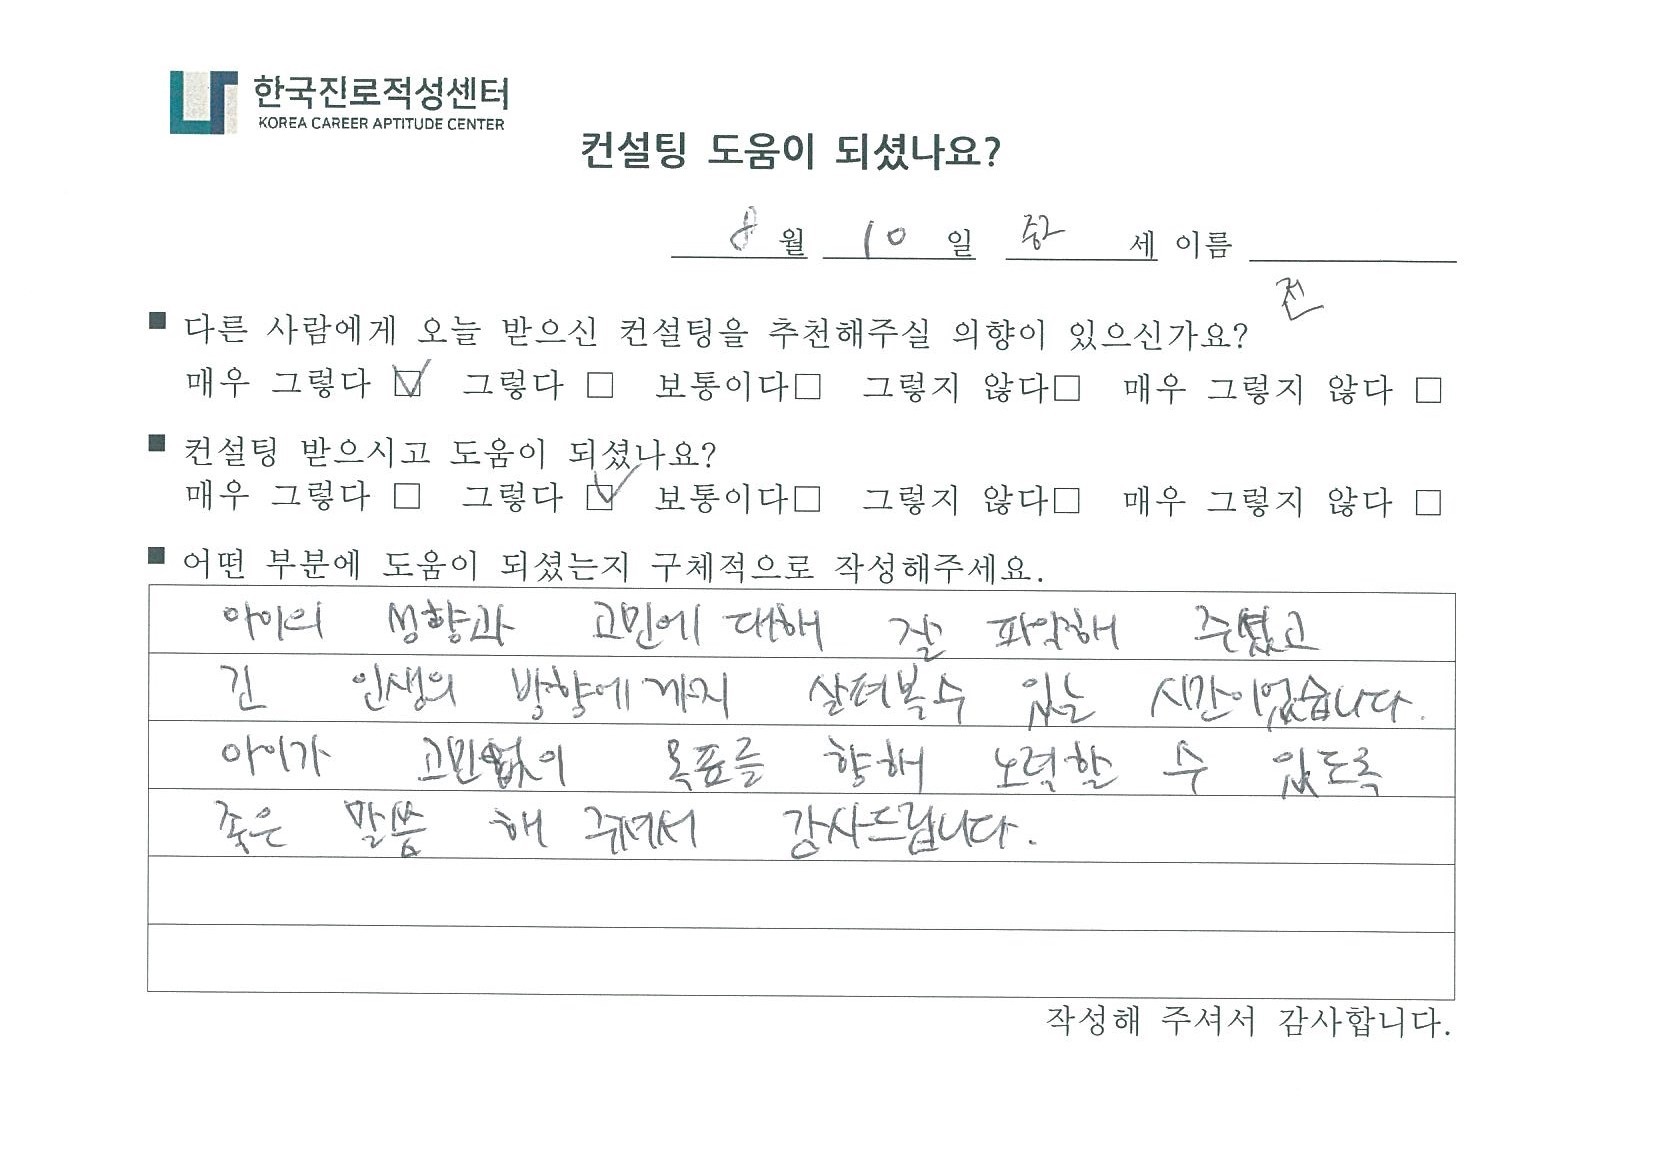 한국진로적성센터
KOREA CAREER APTITUDE CENTER
컨설팅 도움이 되셨나요?
8 월 10 일 중2 세 이름
전
■ 다른 사람에게 오늘 받으신 컨설팅을 추천해주실 의향이 있으신가요?
매우 그렇다 ☑ 그렇다 □ 보통이다□ 그렇지 않다□ 매우 그렇지 않다 □
■ 컨설팅 받으시고 도움이 되셨나요?
매우 그렇다 □ 그렇다 ☑ 보통이다□ 그렇지 않다□ 매우 그렇지 않다 □
■ 어떤 부분에 도움이 되셨는지 구체적으로 작성해주세요.
아이의 성향과 고민에 대해 잘 파악해 주셨고
긴 인생의 방향에 까지 살펴볼수 있는 시간이었습니다.
아이가 고민없이 목표를 향해 노력할 수 있도록
좋은 말씀 해 주셔서 감사드립니다.
작성해 주셔서 감사합니다.